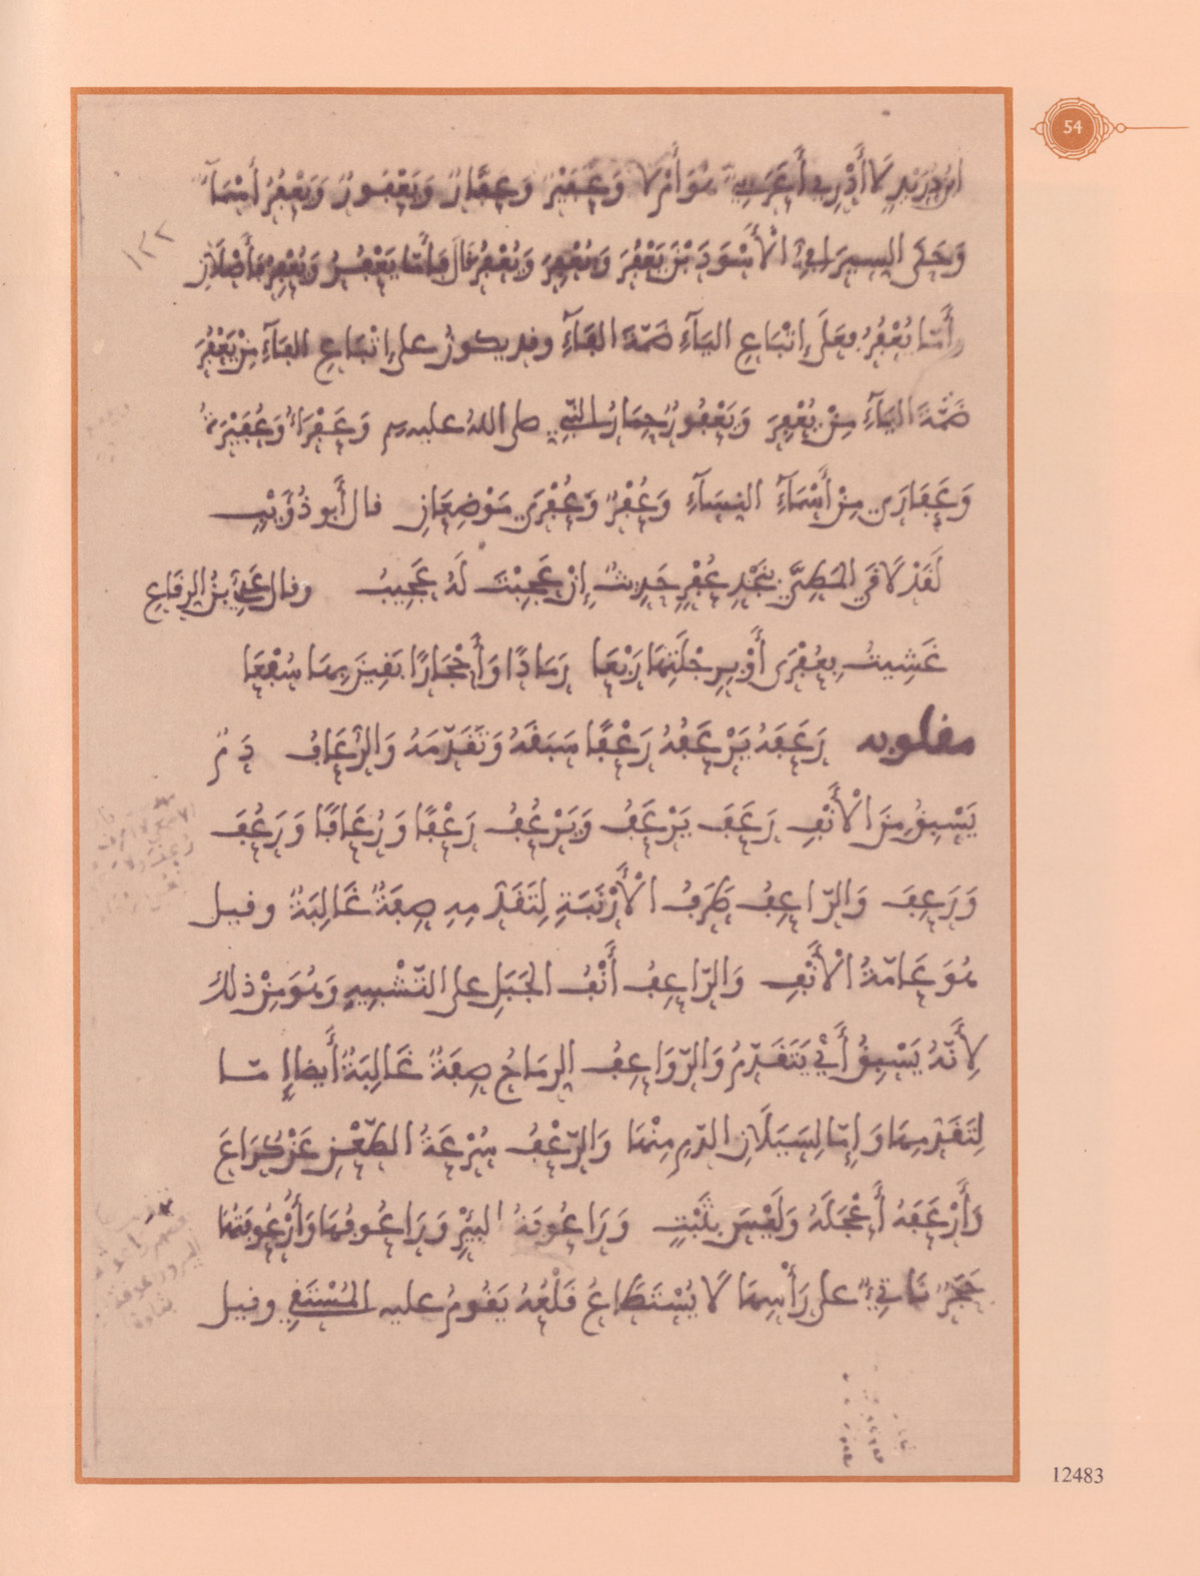 54
ابن دريد لَا أَدْرِي أَعَرَبِيٌّ هُوَ أَمْ لا وَعُفَيْرٌ وَعَفَّارٌ وَيَعْفُورٌ وَيَعْفُرُ أَسْمَآءٌ
وَحَكَى السيرَافِيُّ الْأَسْوَدَ بْنَ يَعْفُرَ وَيُعْفِرَ وَيُعْفُرَ قَالَ فَأَمَّا يَعْفُرُ وَيُعْفِرُ فَأَصْلَانِ
وَأَمَّا يُعْفُرُ فعَلَى إِتْبَاعِ اليَآءِ ضَمَّةَ الفَآءِ وقد يكونُ على إِتْبَاعِ الفَآءِ مِنْ يَعْفُرَ
ضَمَّةَ اليَآءِ مِنْ يُعْفِرَ وَيَعْفُورٌ حِمَارُ النَّبِي صلى اللهُ عليه وَعَفْرَاءُ وَعُفَيْرَةُ
وَعَفَارَى مِنْ أَسْمَآءِ النِسَآءِ وَعُفْرٌ وَعُفْرَى مَوْضِعَانِ قال أَبو ذُؤَيْبٍ
لَقَدْ لَاقَى المَطِيَّ بِنَجْدِ عُفْرٍ حَدِيثٌ إِنْ عَجِبْتَ لَهُ عَجِيبُ وقال عَدِيُّ بنُ الرِقَاعِ
غَشِيتُ بِعُفْرَى أَوْ بِرِجْلَتِهَا رَبْعَا رَمَادًا وَأَحْجَارًا بَقِينَ بِهَا سُفْعَا
مقلوبه رَعَفَهُ يَرْعَفُهُ رَعْفًا سَبَقَهُ وَتَقَدَّمَهُ وَالرُّعَافُ دَمٌ
يَسْبِقُ مِنَ الْأَنْفِ رَعَفَ يَرْعَفُ وَيَرْعُفُ رَعْفًا وَرُعَافًا وَرَعُفَ
وَرَعِفَ وَالرّاعِفُ طَرَفُ الْأَرْنَبَةِ لِتَقَدُّمِهِ صِفَةٌ غَالِبَةٌ وقيل
هُوَ عَامّةُ الْأَنْفِ وَالرّاعِفُ أَنْفُ الجَبَلِ على التّشْبِيهِ وَهُوَ مِنْ ذلك
لِأَنّهُ يَسْبِقُ أَيْ يَتَقَدّمُ وَالرّوَاعِفُ الرمَاحُ صِفَةٌ غَالِبَةٌ أَيضا إِمّا
لِتَقَدُّمِهَا وَإِمّا لِسَيَلَانِ الدّمِ مِنْهَا وَالرّعْفُ سُرْعَةُ الطّعْنِ عَنْ كُرَاعَ
وَأَرْعَفَهُ أَعْجَلَهُ وَلَيْسَ بِثَبْتٍ وَرَاعُوفَةُ البِئْرِ وَرَاعُوفُهَا وَأُرْعُوفَتُهَا
حَجَرٌ نَاتِئٌ على رَأْسِهَا لَا يُسْتَطَاعُ قَلْعُهُ يَقُومُ عليه المُسْتَقِي وقيل
12483